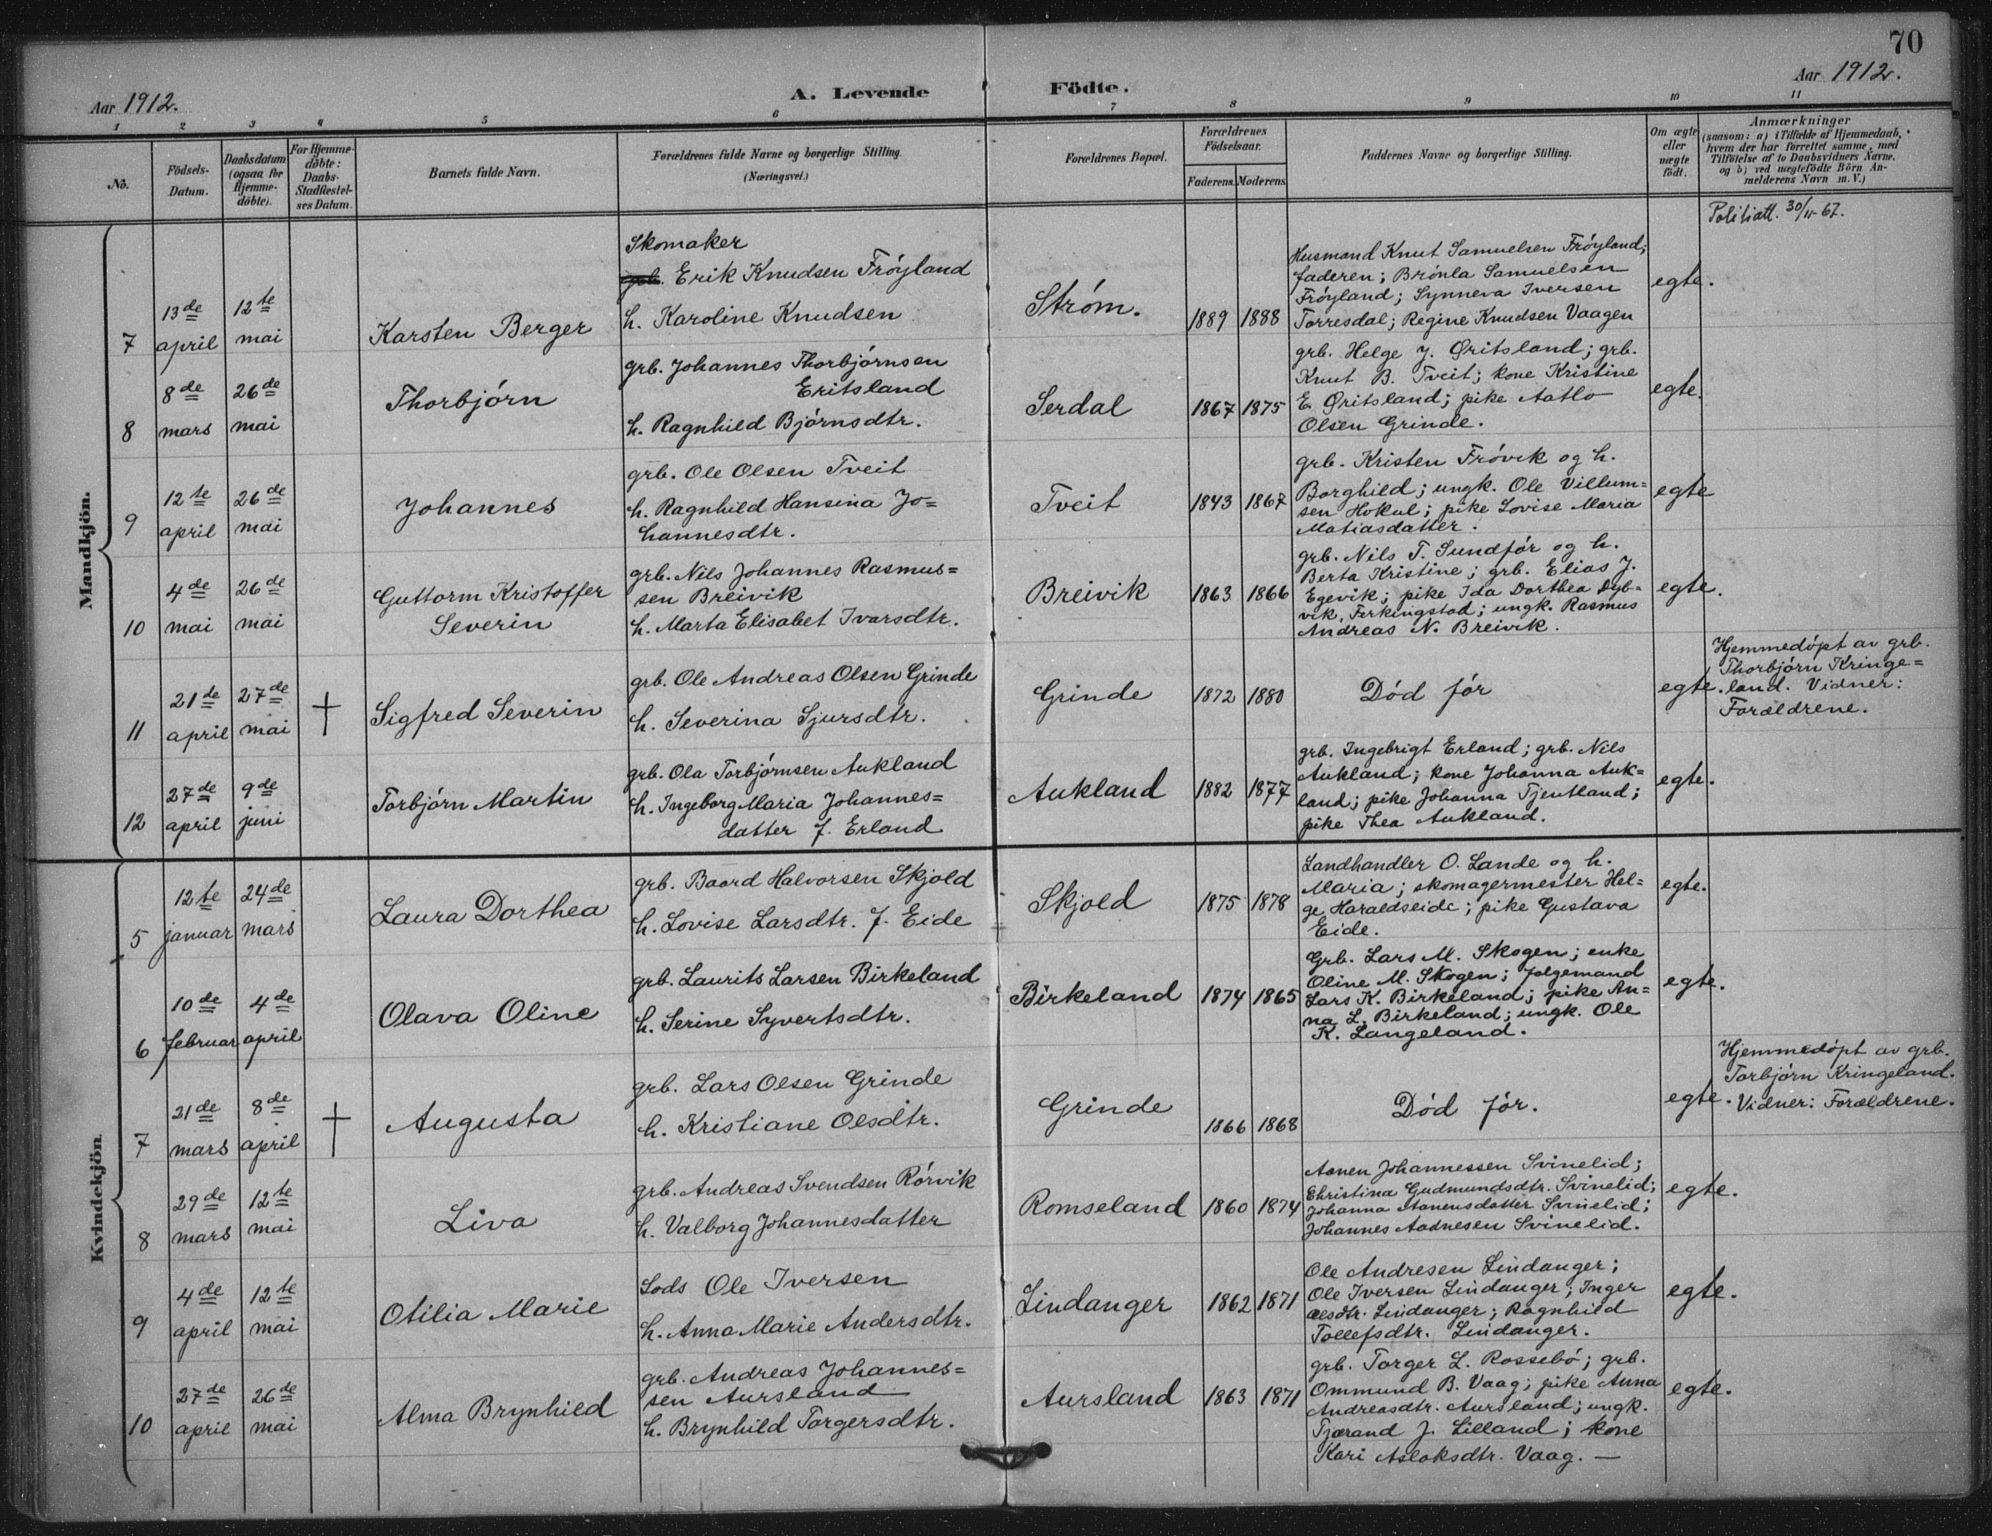 70
Aar 1912.
A. Levende
Födte.
Aar 1912.
1
2
3
4
5
6
7
8
9
10
11
No.
Födsels-
Datum.
Daabsdatum
(ogsaa for
Hjemme-
döbte).
For Hjemme-
döbte:
Daabs-
Stadfæstel-
ses Datum.
Barnets fulde Navn.
Forældrenes fulde Navne og borgerlige Stilling.
(Næringsvei.)
Forældrenes Bopæl.
Forældrenes
Födselsaar.
Faderens.
Moderens.
Faddernes Navne og borgerlige Stilling.
Om ægte
eller
uægte
födt.
Anmærkninger
(saasom: a) i Tilfælde af Hjemmedaab,
hvem der har forrettet samme, med
Tilföielse af to Daabsvidners Navne.
og b) ved uægtefödte Börn An-
melderens Navn m. V.)
Mandkjön.
7
13de
april
12te
mai
Karsten Berger
Skomaker
grb. Erik Knudsen Frøyland
h. Karoline Knudsen
Strøm.
1889
1888
Husmand Knut Samuelsen Frøyland;
faderen; Brønla Samuelsen
Frøyland; Synneva Iversen
Torresdal; Regine Knudsen Vaagen
egte.
Politiatt. 30/11-67.
8
8de
mars
26de
mai
Thorbjørn
grb. Johannes Thorbjørnsen
Eritsland
h. Ragnhild Bjørnsdtr.
Serdal
1867
1875
grb. Helge J. Øritsland; grb.
Knut B. Tveit; kone Kristine
E. Øritsland; pike Aatlo
Olsen Grinde.
egte.
9
12te
april
26de
mai
Johannes
grb. Ole Olsen Tveit
h. Ragnhild Hansina Jo=
hannesdtr.
Tveit
1843
1867
grb. Kristen Frøvik og h.
Borghild; ungk. Ole Villum=
sen Hokul; pike Lovise Maria
Matiasdatter.
egte
10
4de
mai
26de
mai
Guttorm Kristoffer
Severin
grb. Nils Johannes Rasmus=
sen Breivik
h. Marta Elisabet Ivarsdtr.
Breivik
1863
1866
grb. Nils T. Sundfør og h.
Berta Kristine; grb. Elias J.
Egevik; pike Ida Dorthea Dyb=
vik, Ferkingstad; ungk. Rasmus
Andreas N. Breivik.
egte.
11
21de
april
27de
mai
†
Sigfred Severin
grb. Ole Andreas Olsen Grinde
h. Severina Sjursdtr.
Grinde
1872
1880
Død før
egte.
Hjemmedøpt av grb.
Thorbjørn Kringe=
land. Vidner:
Forældrene.
12
27de
april
9de
juni
Torbjørn Martin
grb. Ola Torbjørnsen Aukland
h. Ingeborg Maria Johannes=
datter f. Erland
Aukland
1882
1877
grb. Ingebrigt Erland; grb. Nils
Aukland; kone Johanna Auk=
land; pike Johanna Tjentland;
pike Thea Aukland.
egte.
Kvindekjön.
5
12te
januar
24de
mars
Laura Dorthea
grb. Baard Halvorsen Skjold
h. Lovise Larsdtr. f. Eide
Skjold
1875
1878
Landhandler O. Lande og h.
Maria; skomagermester Hel=
ge Haraldseide; pike Gustava
Eide.
egte.
6
10de
februar
4de
april
Olava Oline
grb. Laurits Larsen Birkeland
h. Serine Syvertsdtr.
Birkeland
1874
1865
Grb. Lars M. Skogen; enke
Oline M. Skogen; følgemand
Lars K. Birkeland; pike An=
na L. Birkeland; ungk. Ole
K. Langeland.
egte.
7
21de
mars
8de
april
†
Augusta
grb. Lars Olsen Grinde
h. Kristiane Olsdtr.
Grinde
1866
1868
Død før.
egte.
Hjemmedøpt av grb.
Torbjørn Kringeland.
Vidner: Forældrene.
8
29de
mars
12te
mai
Liva
grb. Andreas Svendsen Rørvik
h. Valborg Johannesdatter
Romseland
1860
1874
Aanen Johannessen Svinelid;
Christina Gudmundsdtr. Svinelid;
Johanna Aanensdatter Svinelid;
Johannes Aadnesen Svinelid.
egte.
9
4de
april
12te
mai
Otilia Marie
Lods Ole Iversen
h. Anna Marie Andersdtr.
Lindanger
1862
1871
Ole Andresen Lindanger;
Ole Iversen Lindanger; Inger
Olsdtr. Lindanger; Ragnhild
Tollefsdtr. Lindanger.
egte.
10
27de
april
26de
mai
Alma Brynhild
grb. Andreas Johannes=
sen Aursland
h. Brynhild Torgersdtr.
Aursland
1863
1871
grb. Torger L. Rossebø; grb.
Ommund B. Vaag; pike Anna
Andreasdtr. Aursland; ungk.
Tjærand J. Lilland; kone
Kari Aslaksdtr. Vaag. —
egte.